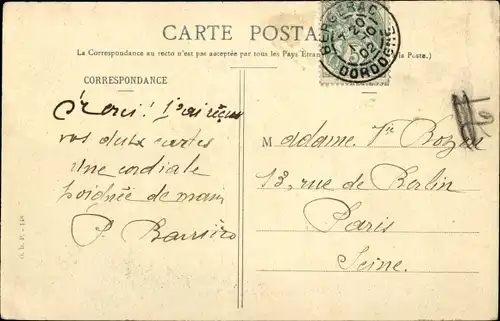 CARTE POSTA
La Correspondance au recto n'est pas acceptée par tous les Pays Étran la Poste.)
BERGERAC
DORDOGNE
CORRESPONDANCE
Merci! J'ai reçu
vos deux cartes
Une cordiale
poignée de main
Madame Vve
13, rue de Berlin
Paris
Seine.